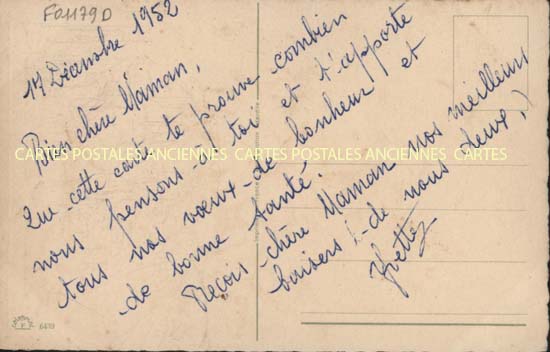 FQ1179D
17 Décembre 1952
Bien chère Maman,
Que cette carte te prouve combien
nous pensons à toi et t'apporte
tous nos vœux de bonheur et
de bonne santé.
Reçois chère Maman nos meilleurs
baisers de nous deux,
Yvette
CARTES POSTALES ANCIENNES CARTES POSTALES ANCIENNES CARTES